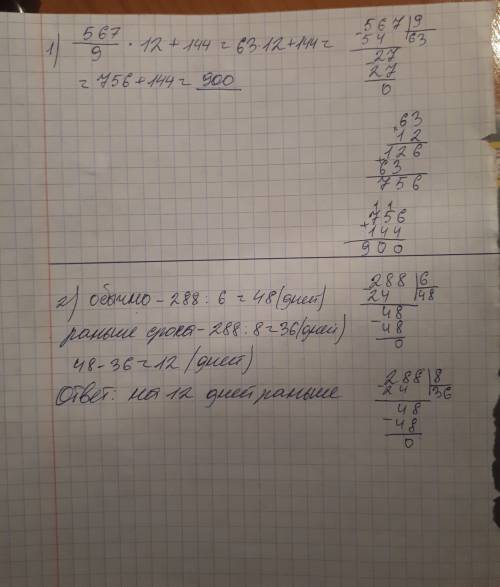 1) 567/9 · 12 + 144 = 63·12+144 =
= 756 + 144 = 900
-567|9
54 |63
-27
27
0
63
×12
126
+63
756
11
756
+144
900
2) обычно - 288 : 6 = 48 (дней)
раньше срока - 288 : 8 = 36 (дней)
48 - 36 = 12 (дней)
Ответ: на 12 дней раньше
-288|6
24 |48
-48
48
0
-288|8
24 |36
-48
48
0